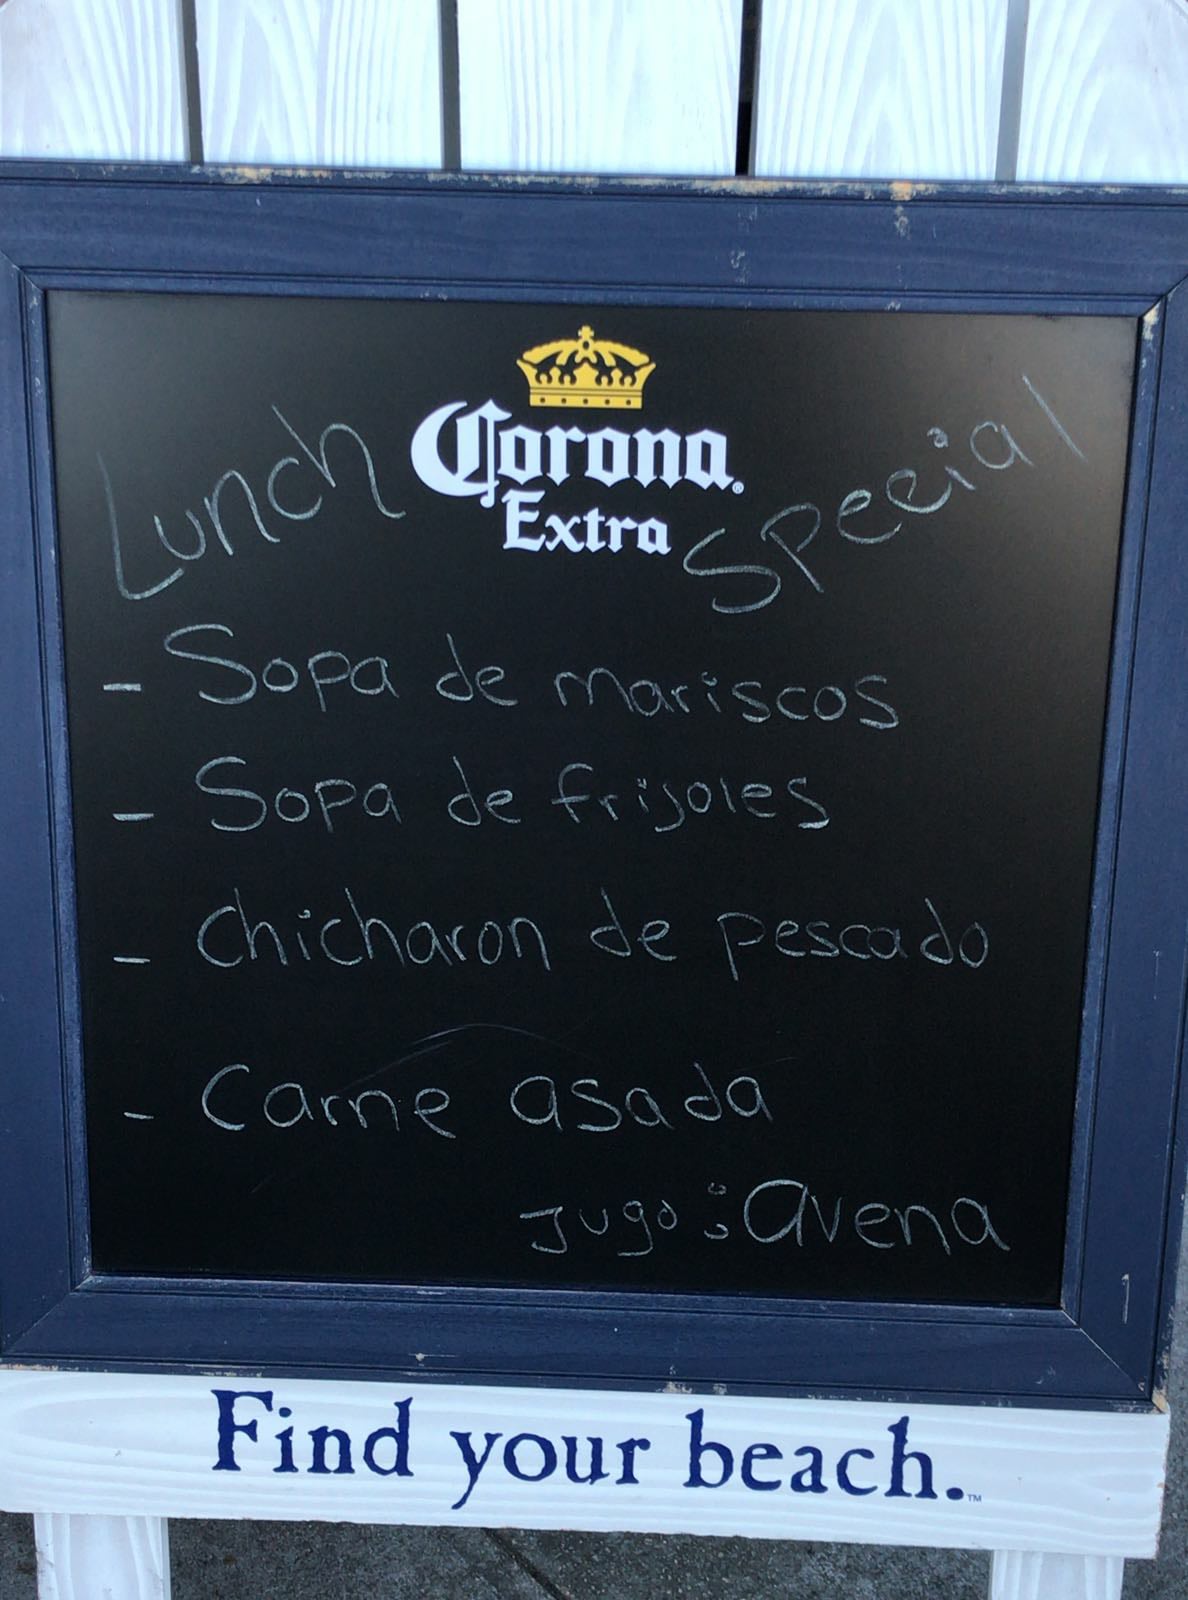 Corona
Extra
Lunch Special
- Sopa de mariscos
- Sopa de frijoles
- Chicharon de pescado
- Carne asada
Jugo: avena
Find your beach.™